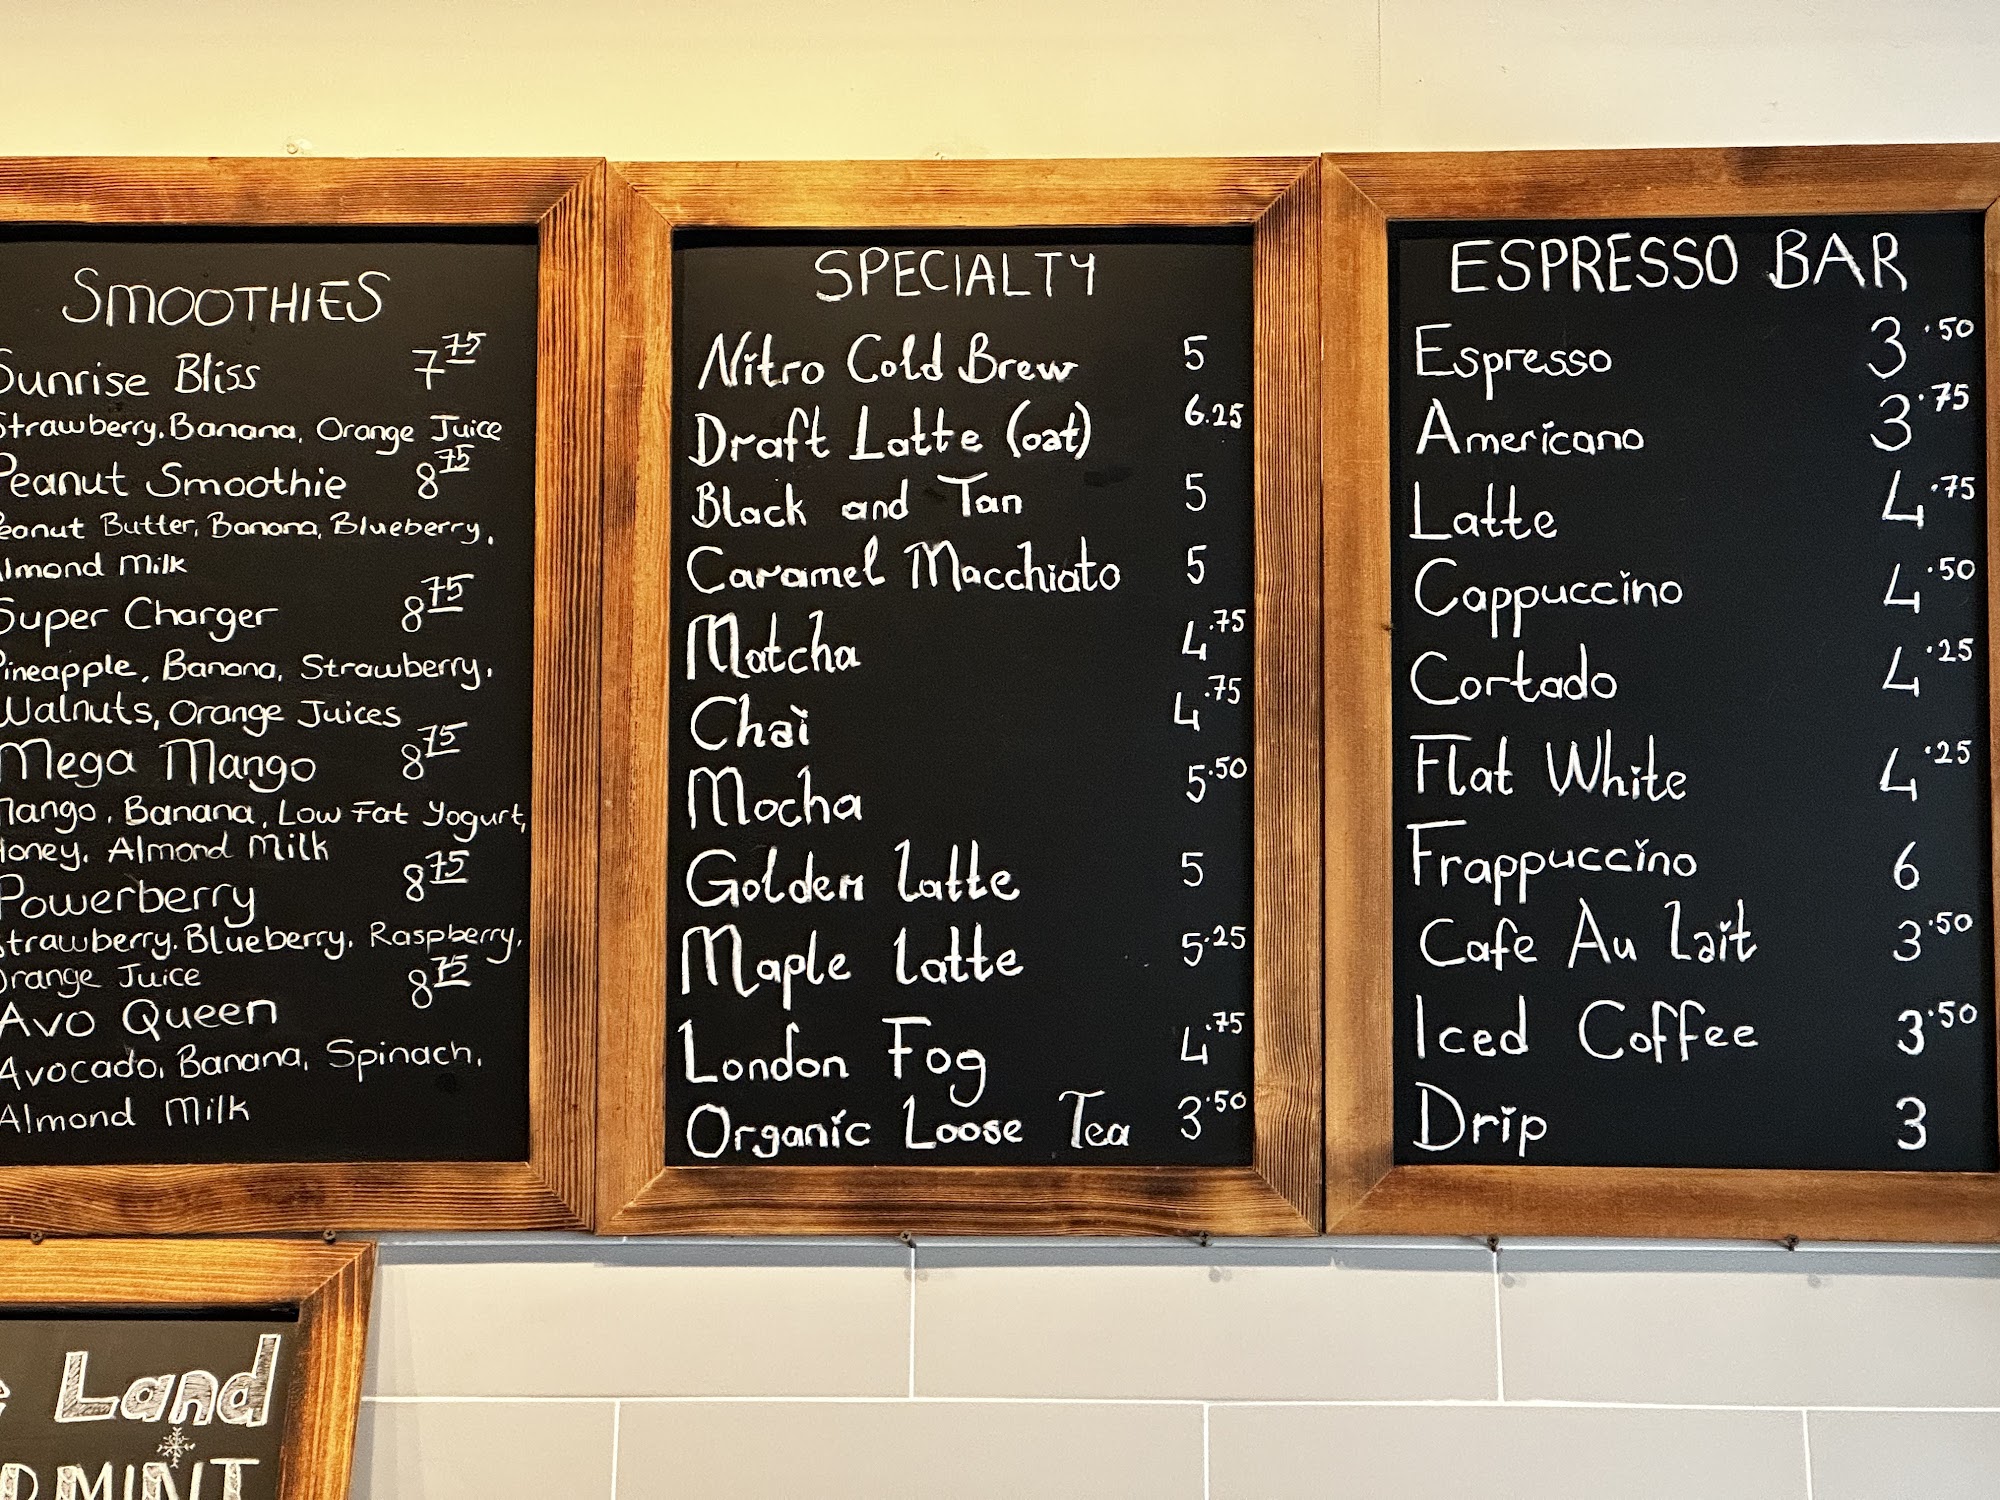 SMOOTHIES
Sunrise Bliss 7 75
Strawberry, Banana, Orange Juice
Peanut Smoothie 8 75
Peanut Butter, Banana, Blueberry,
Almond Milk
Super Charger 8 75
Pineapple, Banana, Strawberry,
Walnuts, Orange Juices
Mega Mango 8 75
Mango, Banana, Low Fat Yogurt,
Honey, Almond Milk
Powerberry 8 75
Strawberry, Blueberry, Raspberry,
Orange Juice
Avo Queen 8 75
Avocado, Banana, Spinach,
Almond Milk
SPECIALTY
Nitro Cold Brew 5
Draft Latte (oat) 6.25
Black and Tan 5
Caramel Macchiato 5
Matcha 4.75
Chai 4.75
Mocha 5.50
Golden latte 5
Maple latte 5.25
London Fog 4.75
Organic Loose Tea 3.50
ESPRESSO BAR
Espresso 3.50
Americano 3.75
Latte 4.75
Cappuccino 4.50
Cortado 4.25
Flat White 4.25
Frappuccino 6
Cafe Au Lait 3.50
Iced Coffee 3.50
Drip 3
Land